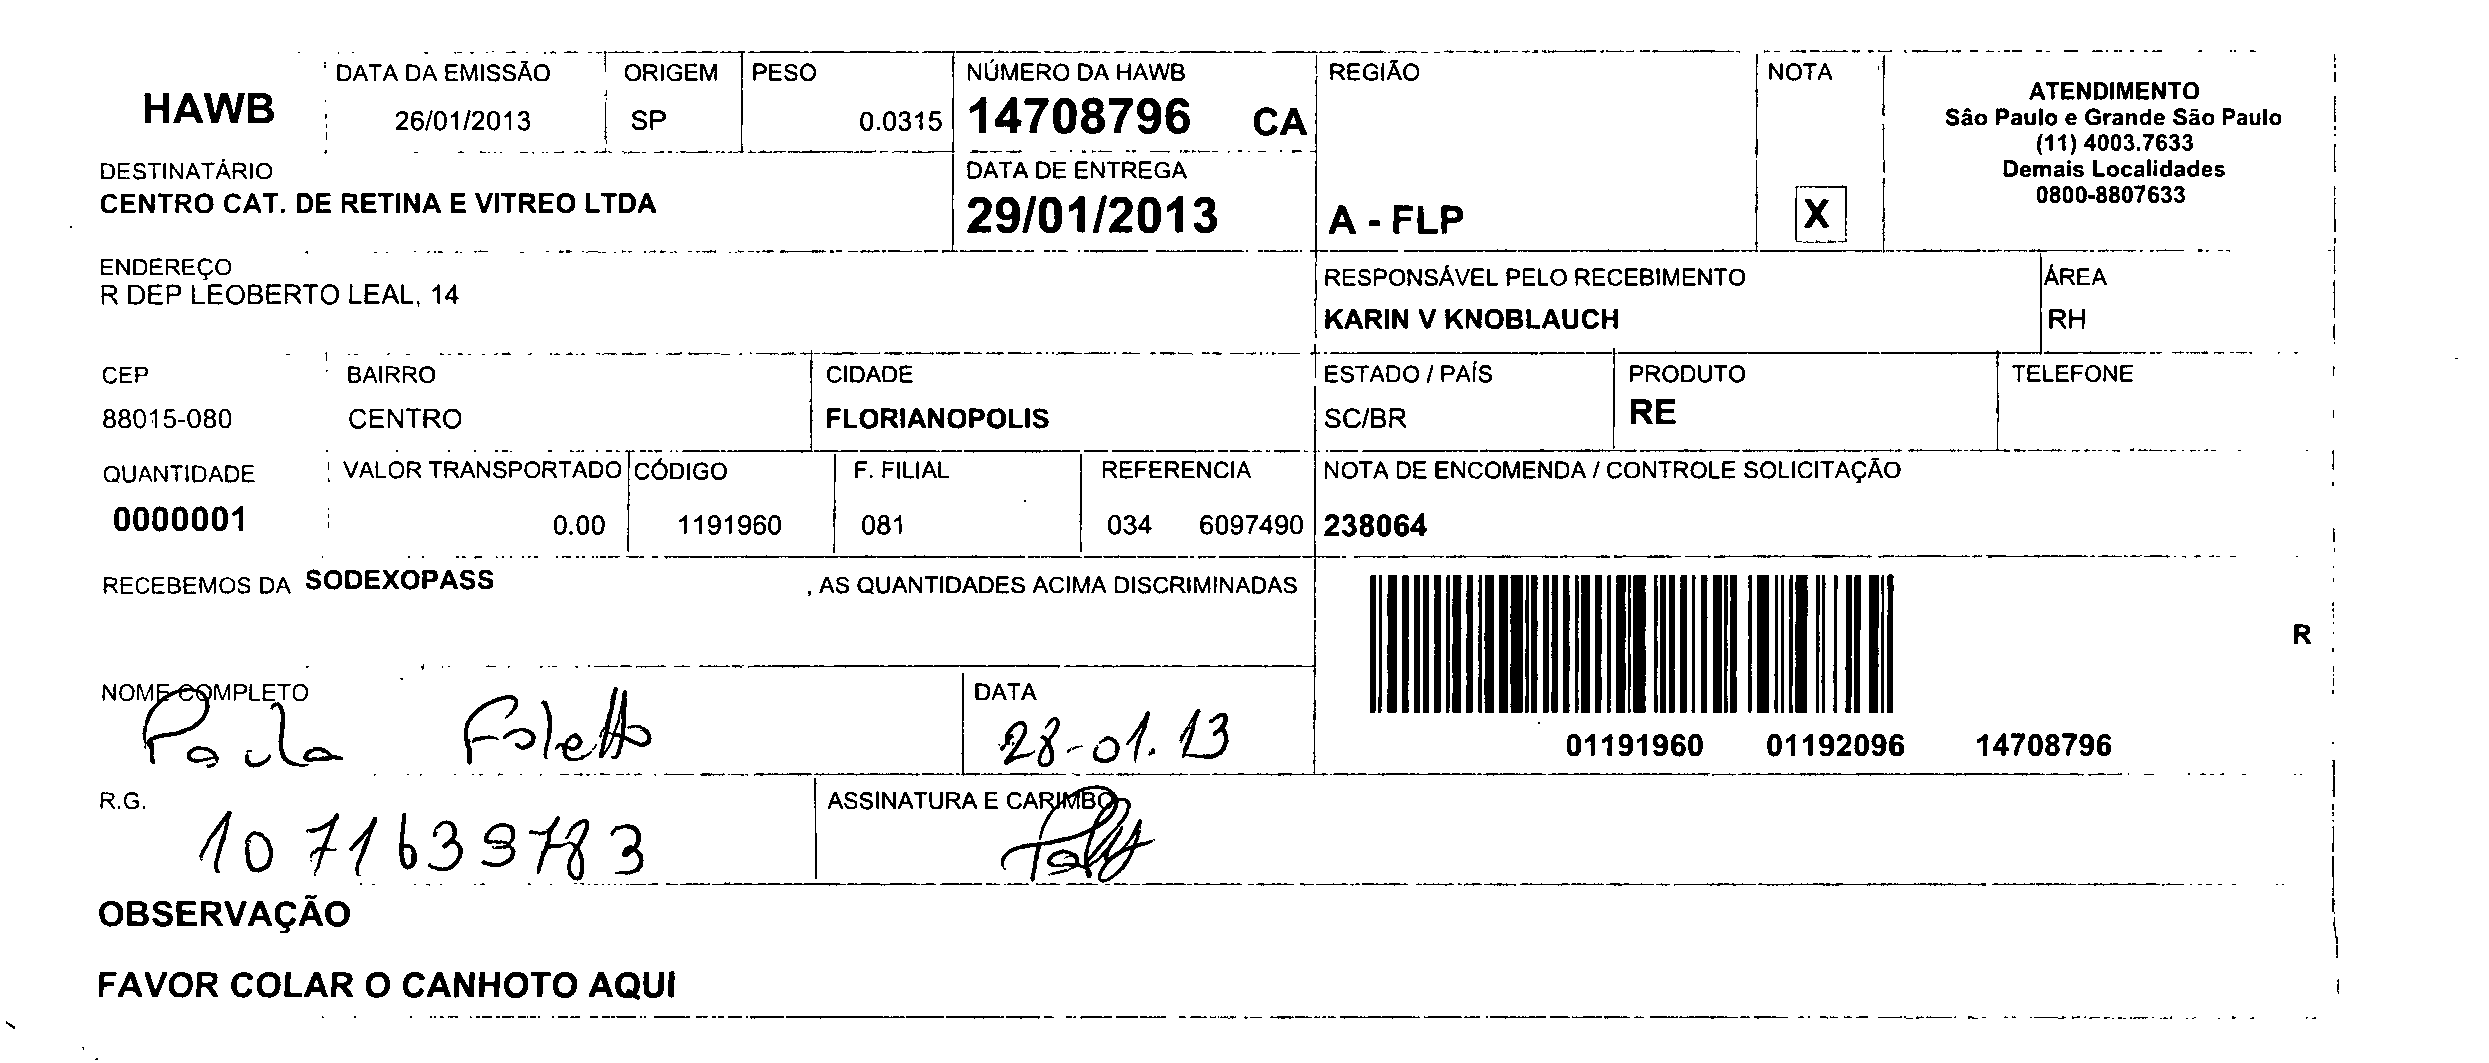 HAWB
DATA DA EMISSÃO
26/01/2013
ORIGEM
SP
PESO
0.0315
NÚMERO DA HAWB
14708796 CA
REGIÃO
A - FLP
NOTA
X
ATENDIMENTO
São Paulo e Grande São Paulo
(11) 4003.7633
Demais Localidades
0800-8807633
DESTINATÁRIO
CENTRO CAT. DE RETINA E VITREO LTDA
DATA DE ENTREGA
29/01/2013
ENDEREÇO
R DEP LEOBERTO LEAL, 14
RESPONSÁVEL PELO RECEBIMENTO
KARIN V KNOBLAUCH
ÁREA
RH
CEP
88015-080
BAIRRO
CENTRO
CIDADE
FLORIANOPOLIS
ESTADO / PAÍS
SC/BR
PRODUTO
RE
TELEFONE
QUANTIDADE
0000001
VALOR TRANSPORTADO
0.00
CÓDIGO
1191960
F. FILIAL
081
REFERENCIA
034 6097490
NOTA DE ENCOMENDA / CONTROLE SOLICITAÇÃO
238064
RECEBEMOS DA SODEXOPASS , AS QUANTIDADES ACIMA DISCRIMINADAS
R
01191960 01192096 14708796
NOME COMPLETO
Paula Foletto
DATA
28-01.13
R.G.
1071639783
ASSINATURA E CARIMBO
OBSERVAÇÃO
FAVOR COLAR O CANHOTO AQUI